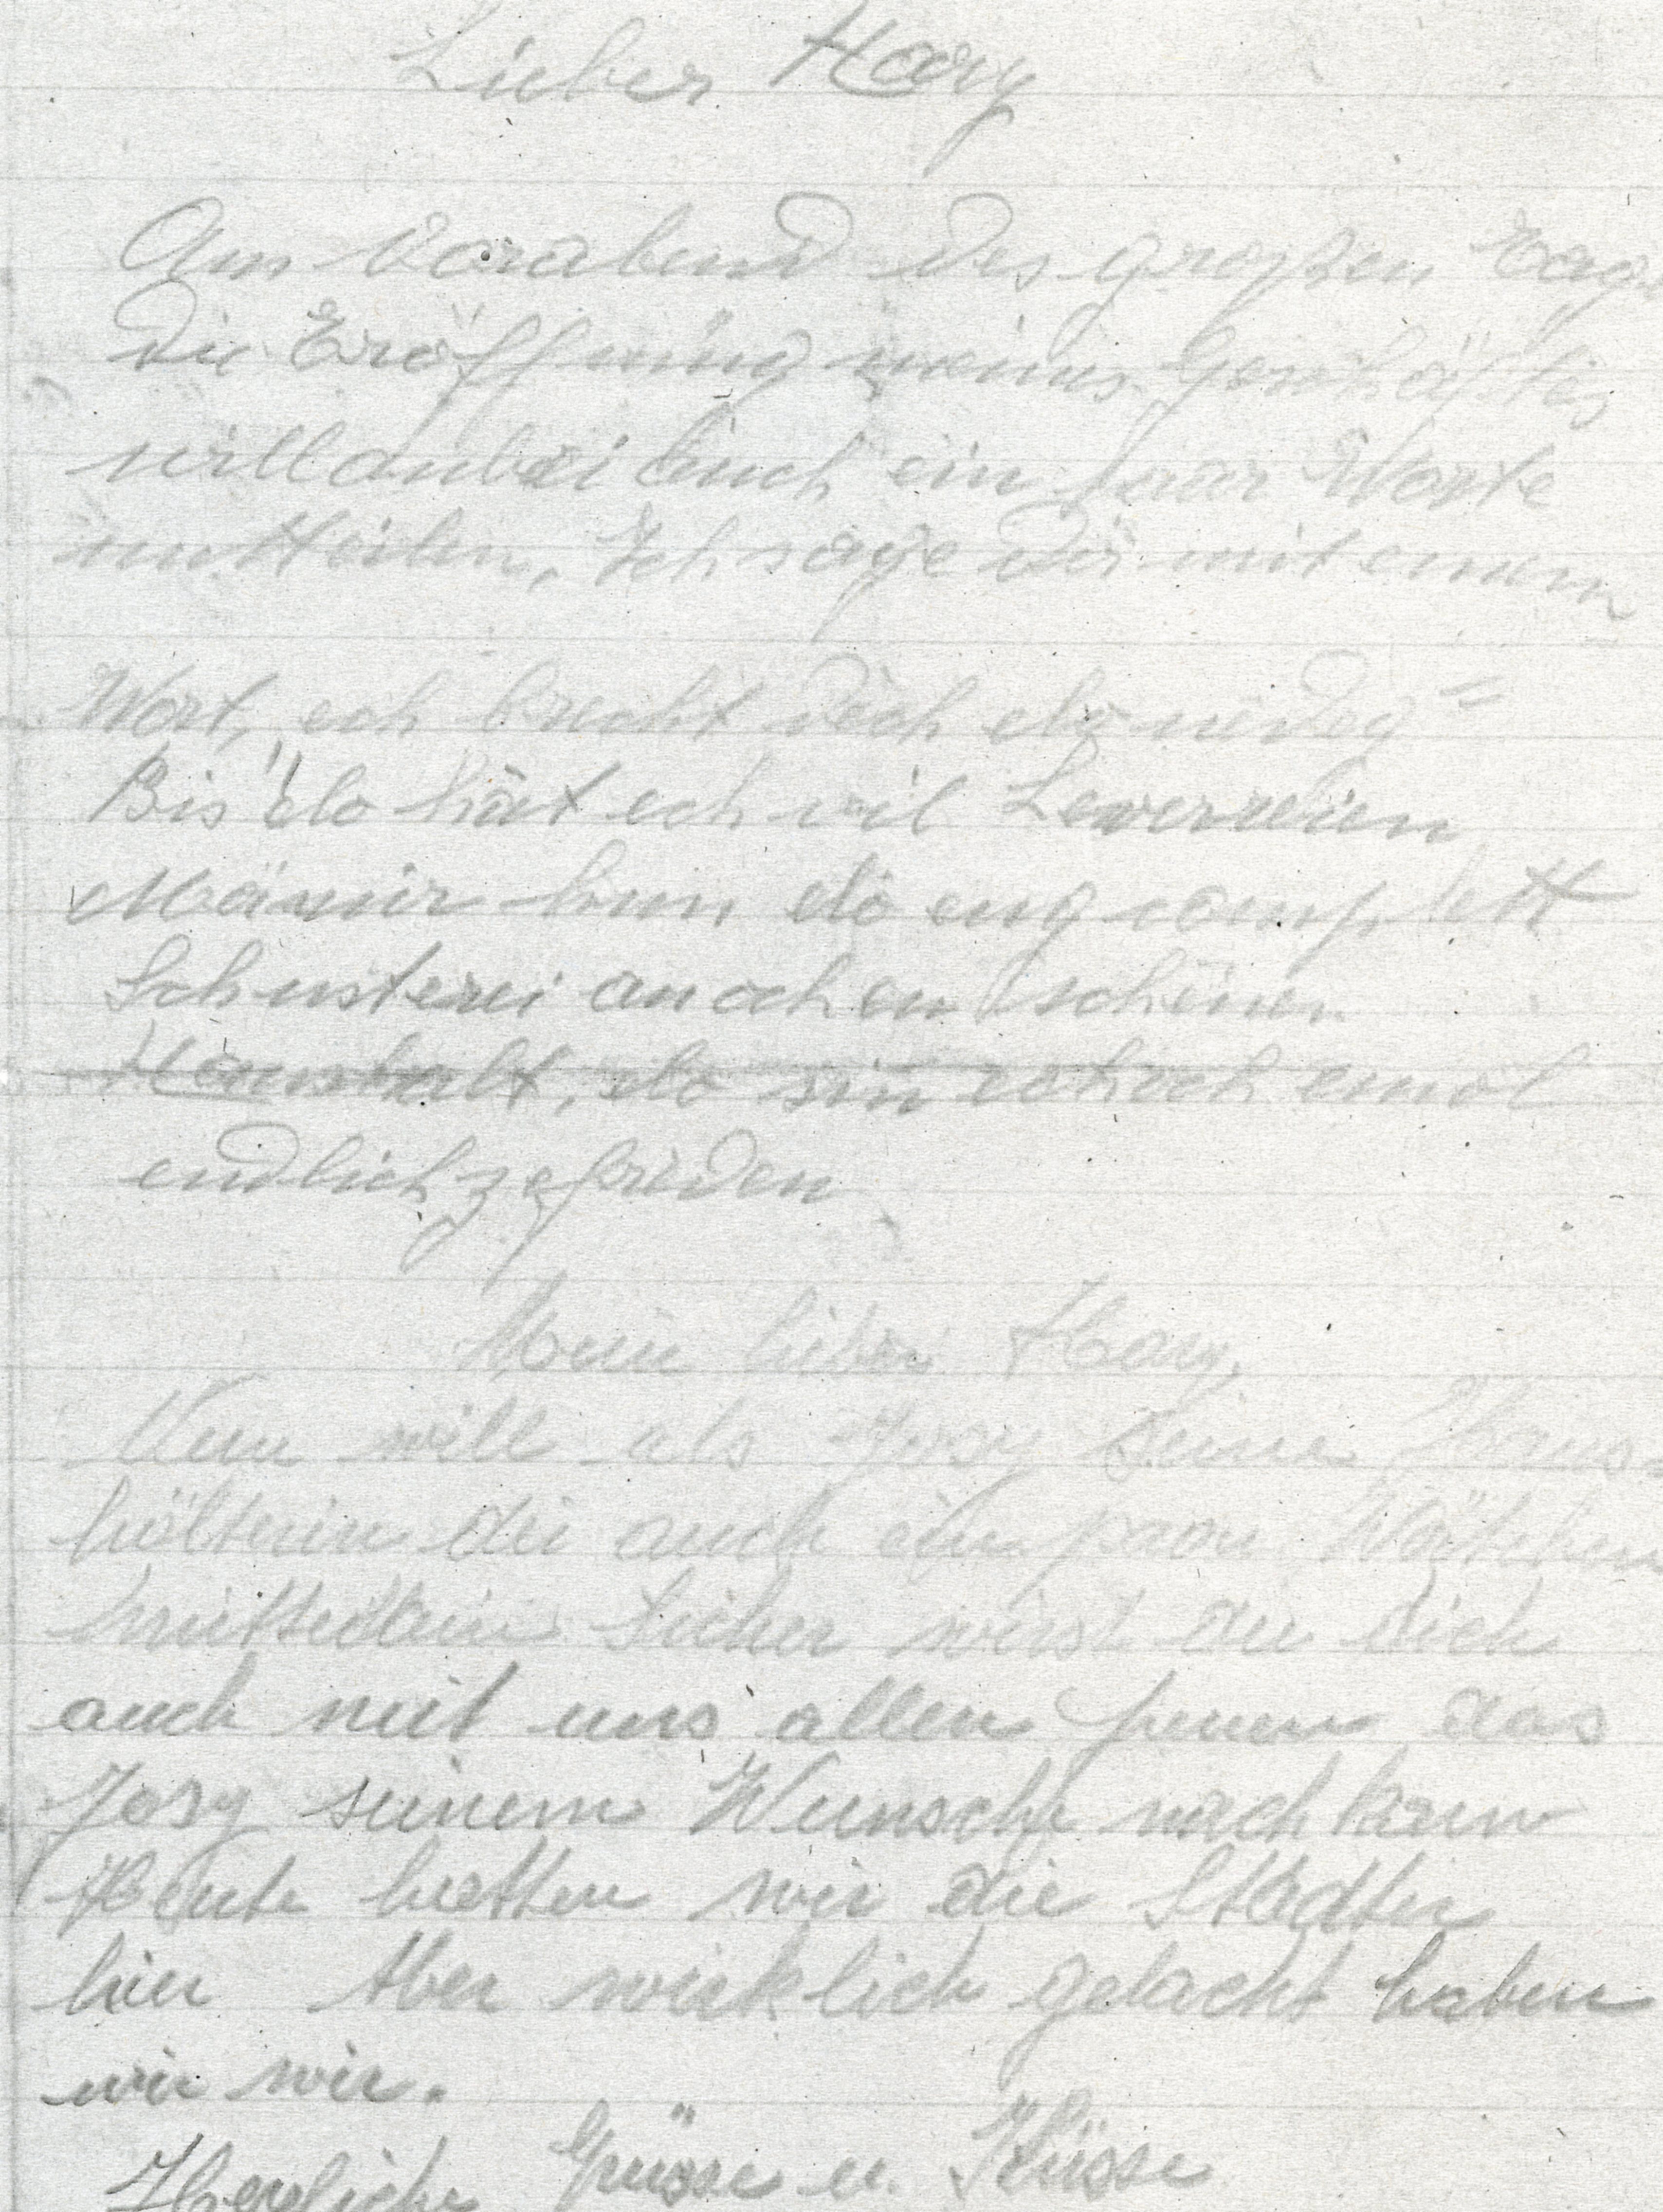 Lieber Hary
Am Vorabend des großen Tag
die Eröffnung meines Geschäftes
will anbei Euch ein paar Worte
mitteilen, Ich sage Dir mit einem
Wort, ech brecht dech do nedeg"
Bis "do hät ech vil
Mä mir hun do eng complett
Schusterei an och en schéinen
Haushalt, do sin ech och emol
endlich zefriden
Mein lieber Hary,
Nun will als Josy seine Haus-
hälterin dir auch ein paar Wörtchen
Sicher wirst du dich
auch mit uns allen freuen das
Josy seinem Wunsche nach kam
Heute hatten wir die Städter
hier Aber wirklich gelacht haben
wir wir.
Herzliche Grüsse u. Küsse